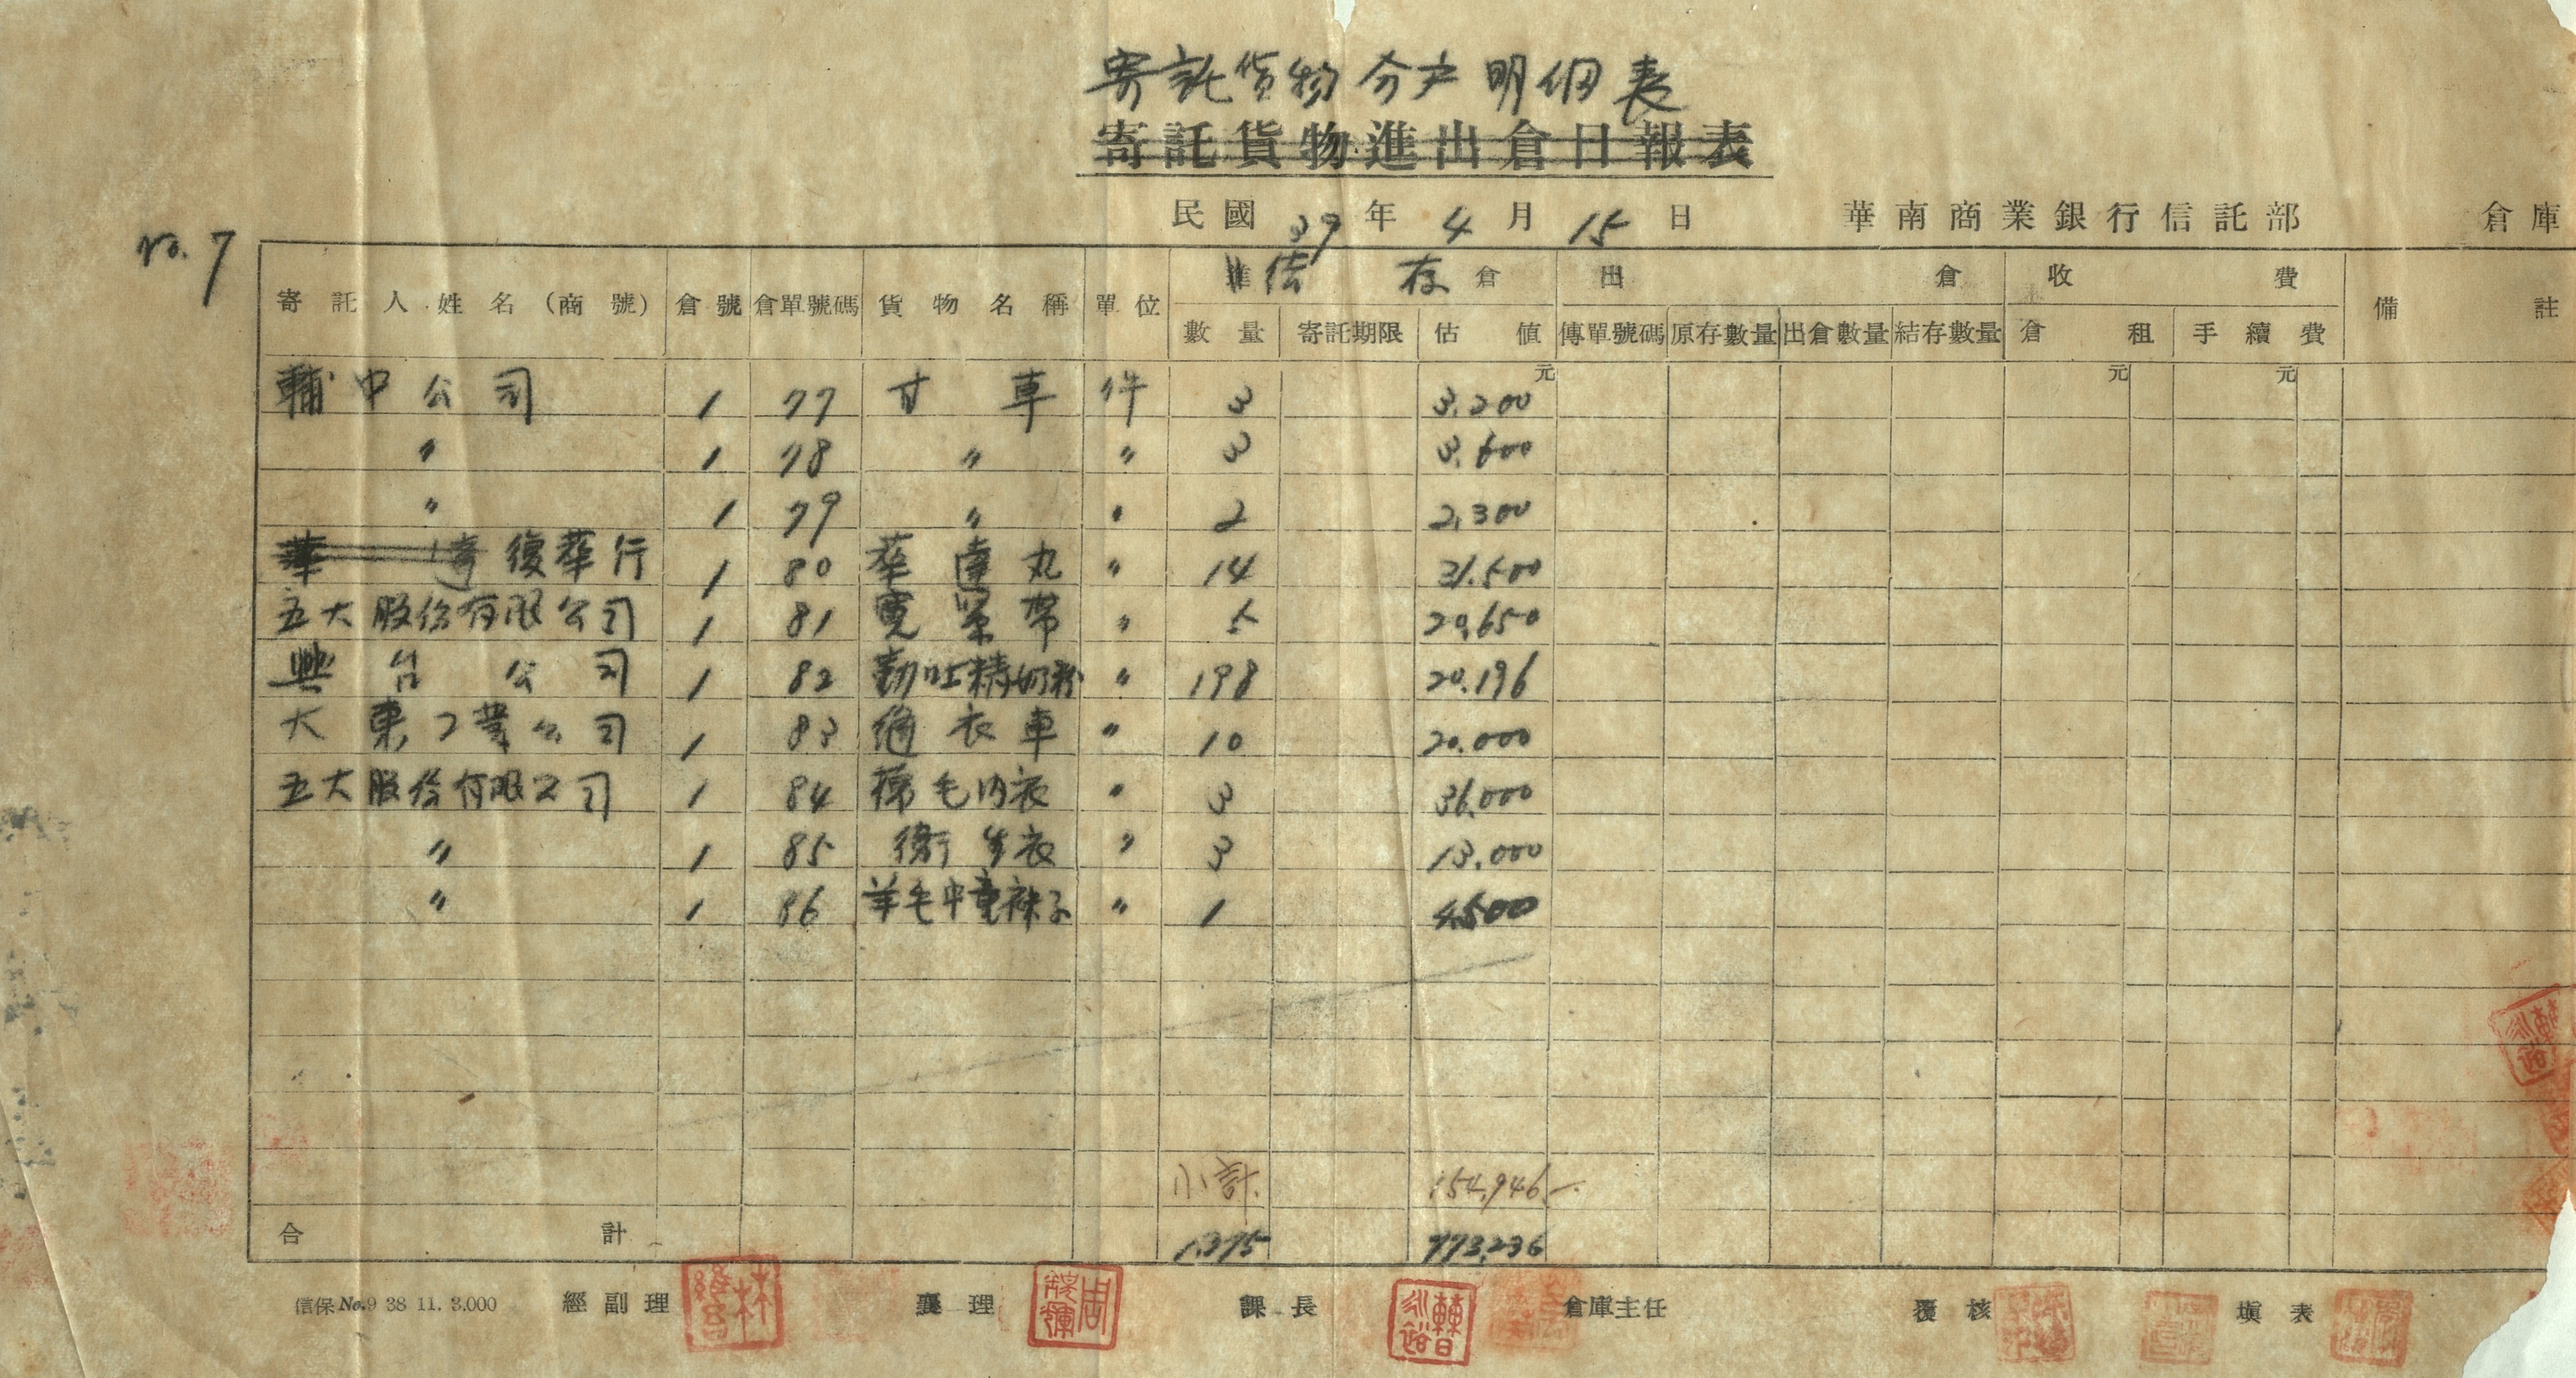 寄託貨物分戶明細表
寄託貨物進出倉日報表
民國 39 年 4 月 15 日 華南商業銀行信託部 倉庫
No. 7
寄託人姓名(商號) 倉號 倉單號碼 貨物名稱 單位 進 結存 倉 出倉 收費 備註
數量 寄託期限 估值 傳單號碼 原存數量 出倉數量 結存數量 倉租 手續費
元 元 元
輔中公司 1 77 寸車 件 3 3.200
〃 1 78 〃 〃 3 3.600
〃 1 79 〃 〃 2 2,300
華 復華行 1 80 華達丸 〃 14 31.500
五大股份有限公司 1 81 寬緊帶 〃 5 20,650
興台公司 1 82 勒吐精奶粉 〃 198 20.196
大東工業公司 1 83 縫衣車 〃 10 20.000
五大股份有限公司 1 84 棉毛內衣 〃 3 36.000
〃 1 85 衛生衣 〃 3 13.000
〃 1 86 羊毛中童襪子 〃 1 4,500
小計 154,946.—
合計 1,375 773,236
信保 No.9 38 11. 3.000 經副理 襄理 課長 倉庫主任 覆核 填表